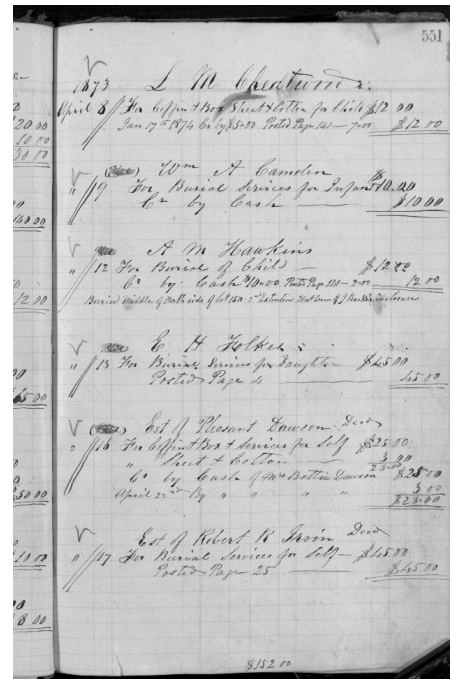 551
1873 L M Cheatwood
April 8 For Coffin & Box Sheet & Cotton for Child $12 00
Jan 17th 1874 Cr by $5.00 Posted Page 141 — 7.00 $12 00
Wm A Camden
" 19 For Burial Services for Infant $10.00
Cr by Cash $10 00
A M Hawkins
" 12 For Burial of Child — $12.00
Cr by Cash $10.00 Posted Page — 2.00 12 00
Buried Middle of North side of lot 150
E H Folkes
" 13 For Burial Services for Daughter $45.00
Posted Page 4 45 00
Est of Pleasant Dawson Decd
" 16 For Coffin & Box & Services for Self $25.00
" Sheet & Cotton 3 00
28.00
Cr by Cash of Mrs Bettie Dawson $25 00
April 22nd By " " " " 3 00
$28.00
Est of Robert R Irvin Decd
" 17 For Burial Services for Self — $45.00
Posted Page 25 $45 00
$152 00
20 00
10 00
30 00
140 00
12 00
65 00
50 00
10 00
8 00